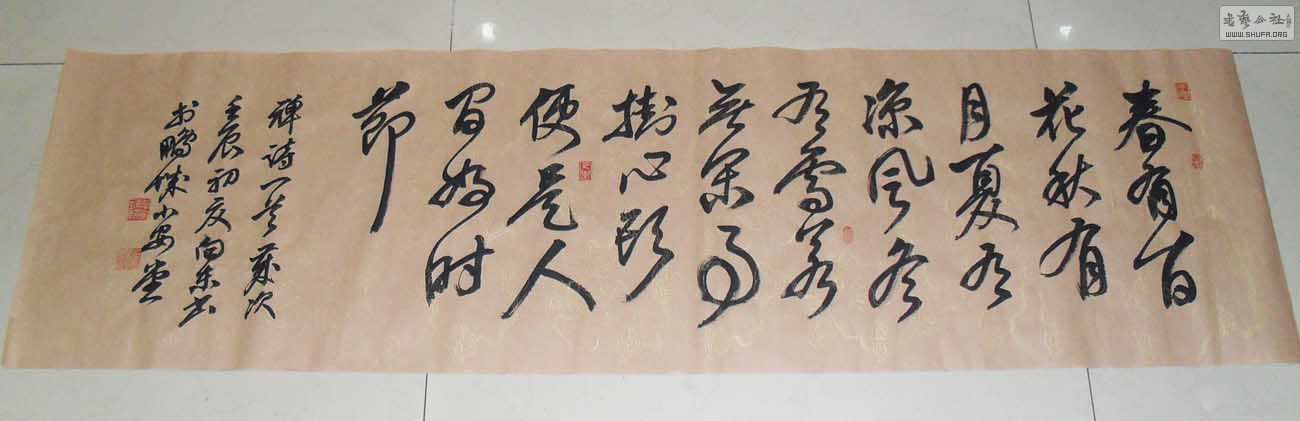 春有百
花秋有
月夏有
凉风冬
有雪若
无闲事
掛心头
便是人
间好时
节
禅诗一首岁次
壬辰初夏向东书
於鹏城小安堂
書藝公社
WWW.SHUFA.ORG